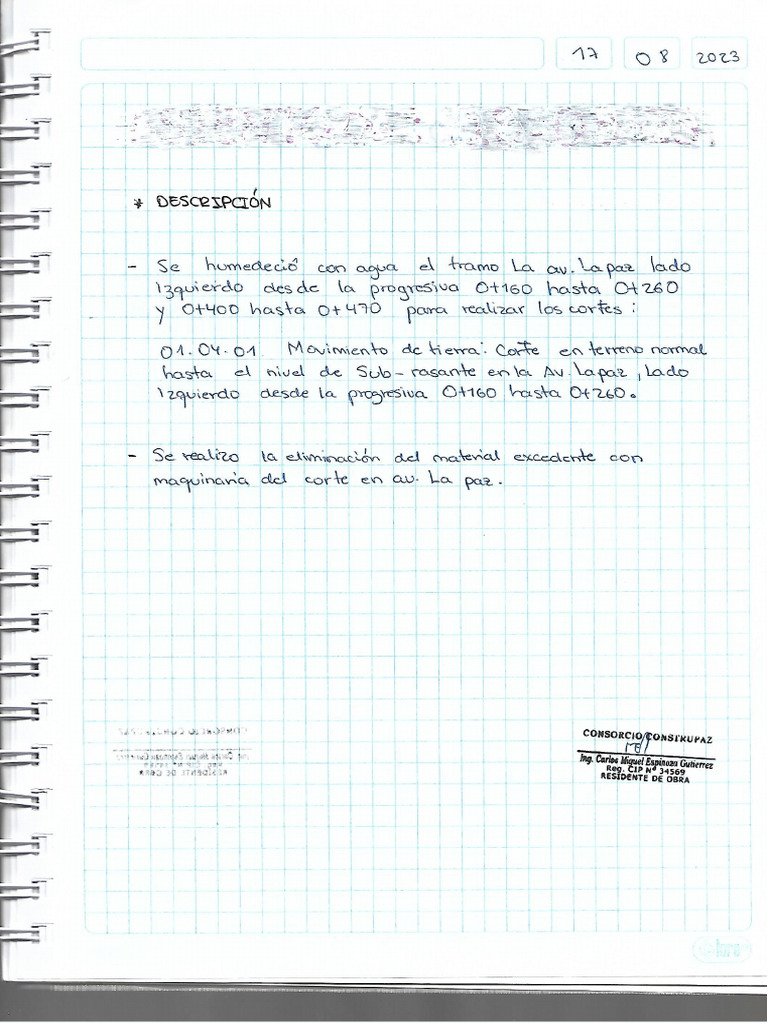 17 08 2023
* DESCRIPCIÓN
- Se humedeció con agua el tramo La av. La paz lado
Izquierdo desde la progresiva 0+160 hasta 0+260
y 0+400 hasta 0+470 para realizar los cortes:
01.04.01. Movimiento de tierra: Corte en terreno normal
hasta el nivel de Sub-rasante en la Av. La paz, lado
Izquierdo desde la progresiva 0+160 hasta 0+260.
- Se realizo la eliminación del material excedente con
maquinaria del corte en av. La paz.
CONSORCIO CONSTRUPAZ
Ing. Carlos Miguel Espinoza Gutierrez
Reg. CIP Nº 34569
RESIDENTE DE OBRA